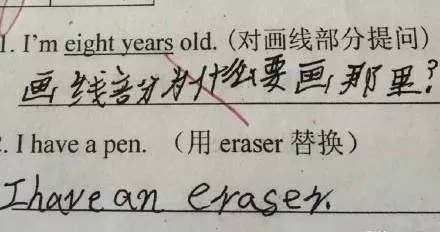 1. I'm eight years old. (对画线部分提问)
画线部分为什么要画那里?
2. I have a pen. (用 eraser 替换)
I have an eraser.